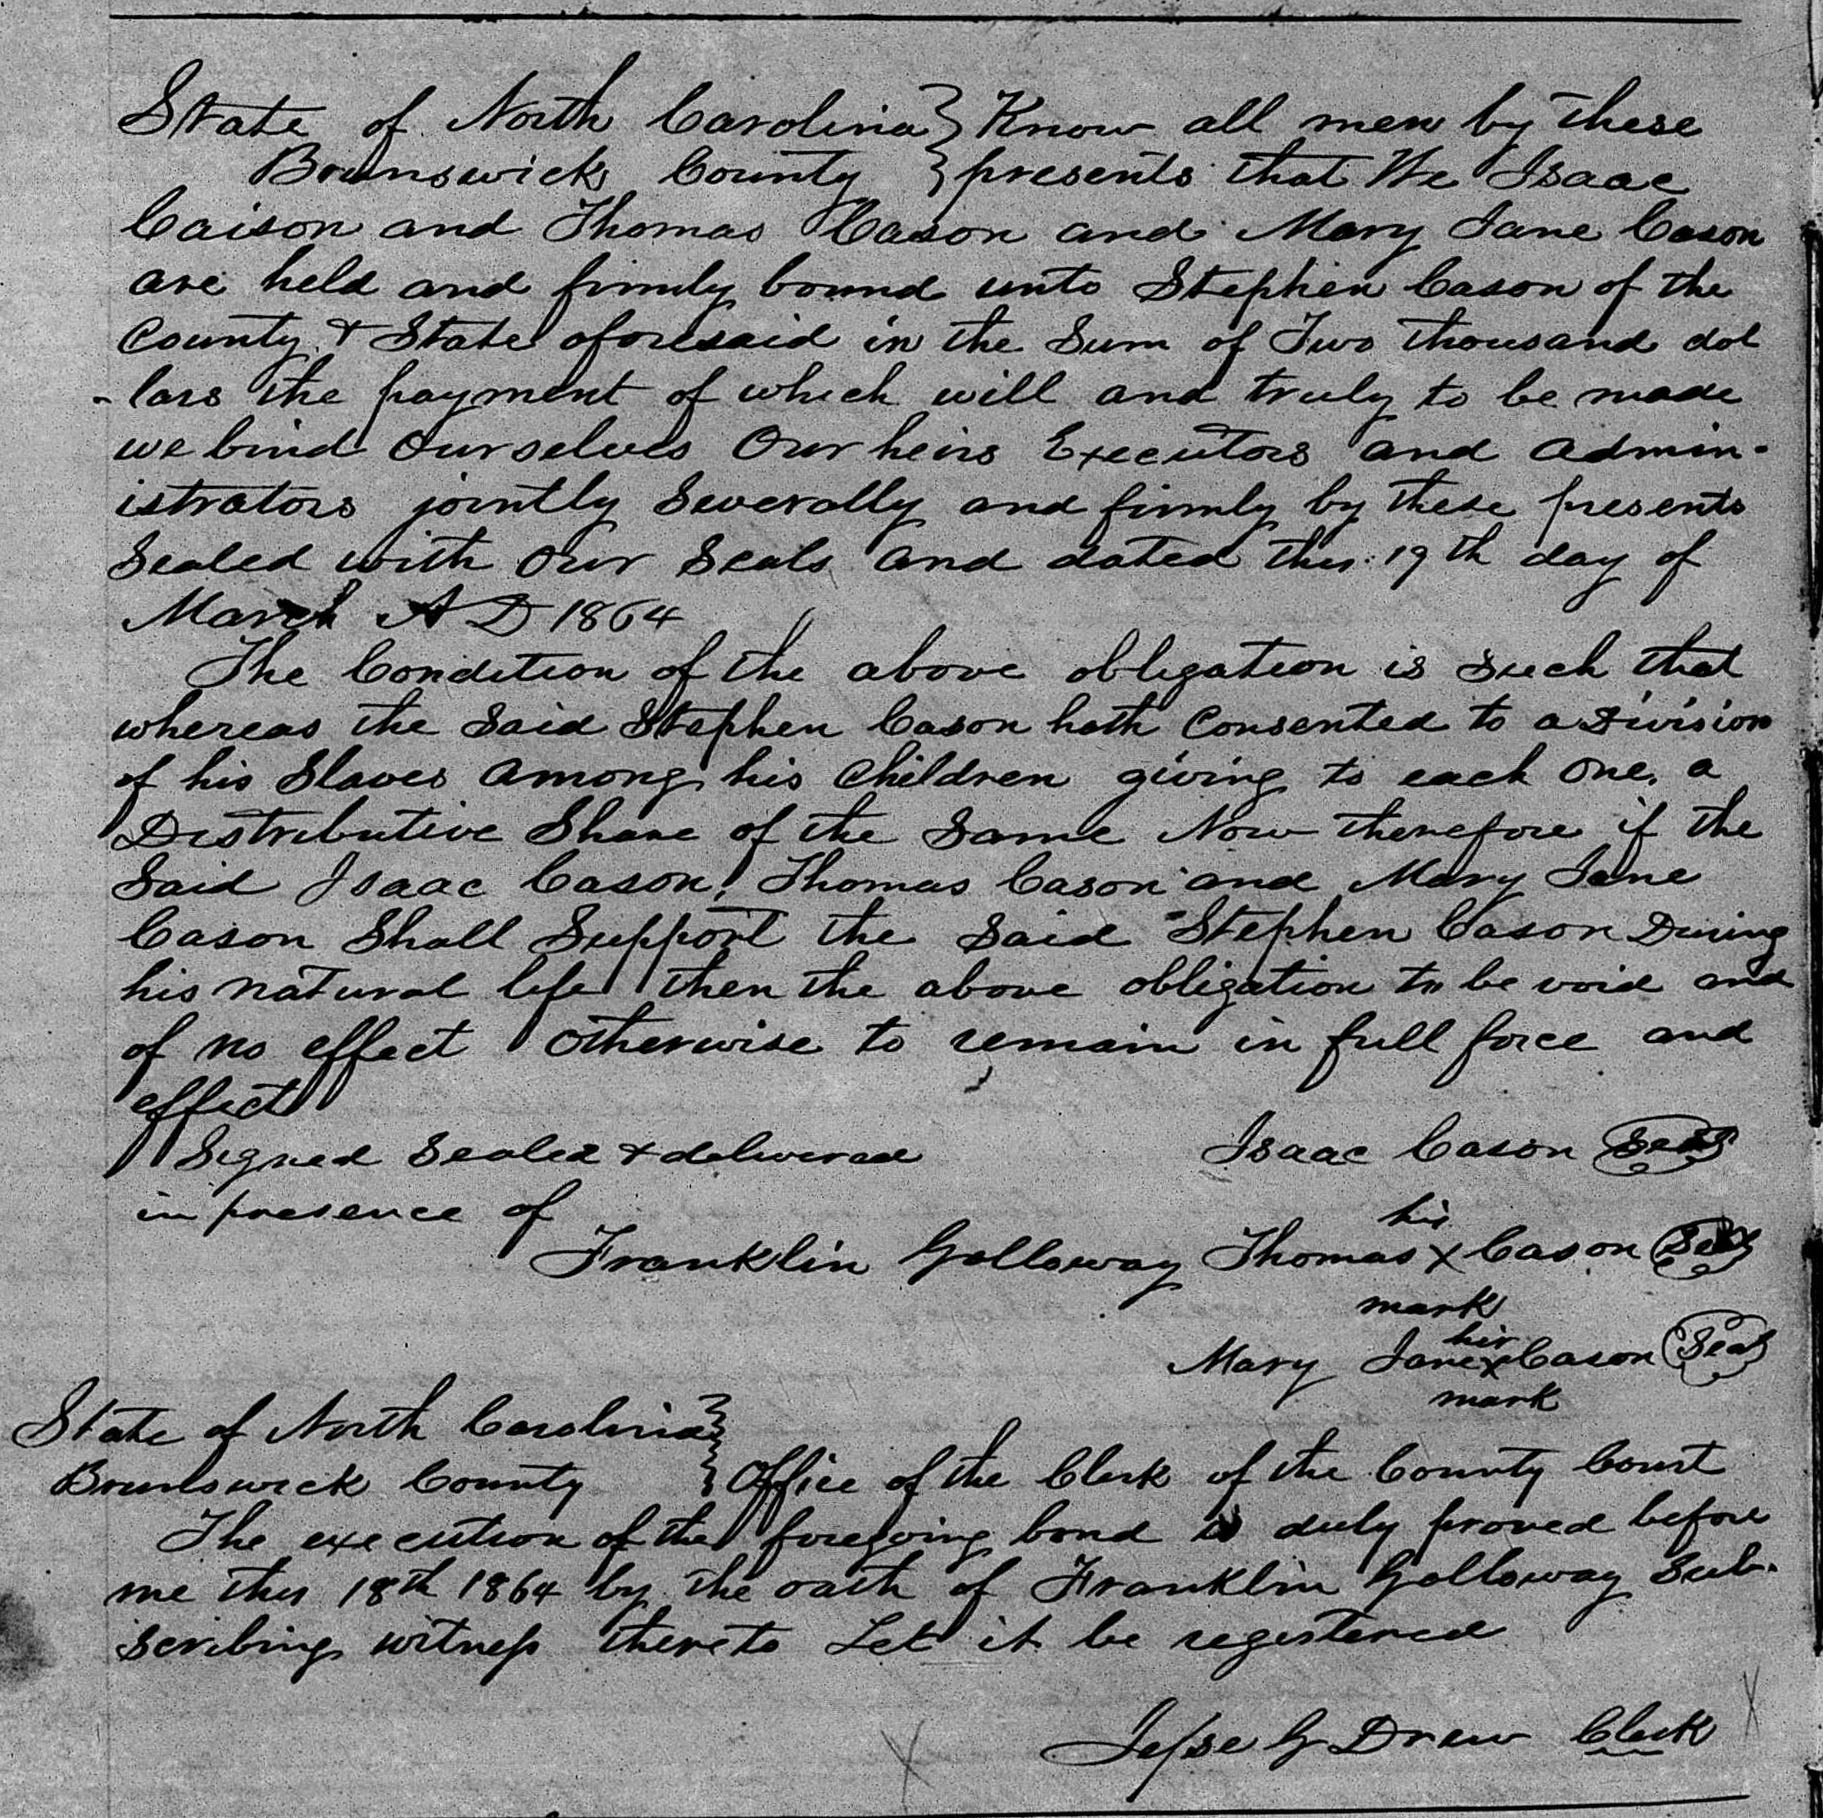 State of North Carolina } Know all men by these
Brunswick County } presents that We Isaac
Caison and Thomas Cason and Mary Jane Cason
are held and firmly bound unto Stephen Cason of the
County & State aforesaid in the Sum of Two thousand dol
-lars the payment of which will and truly to be made
we bind Ourselves Our heirs Executors and admin-
istrators jointly Severally and firmly by these presents
Sealed with Our Seals and dated this 19th day of
March A D 1864
The Condition of the above obligation is Such that
whereas the Said Stephen Cason hath Consented to a Division
of his Slaves among his Children giving to each One, a
Distributive Share of the Same Now therefore if the
Said Isaac Cason, Thomas Cason and Mary Jane
Cason Shall Support the Said Stephen Cason During
his natural life then the above obligation to be void and
of no effect Otherwise to remain in full force and
effect
Signed Sealed & delivered Isaac Cason Seal
in presence of
his
Franklin Galloway Thomas X Cason Seal
mark
hir
Mary Jane X Cason Seal
mark
State of North Carolina }
Brunswick County } Office of the Clerk of the County Court
The execution of the foregoing bond is duly proved before
me this 18th 1864 by the oath of Franklin Galloway Sub-
scribing witness thereto Let it be registered
Jesse G Drew Clerk